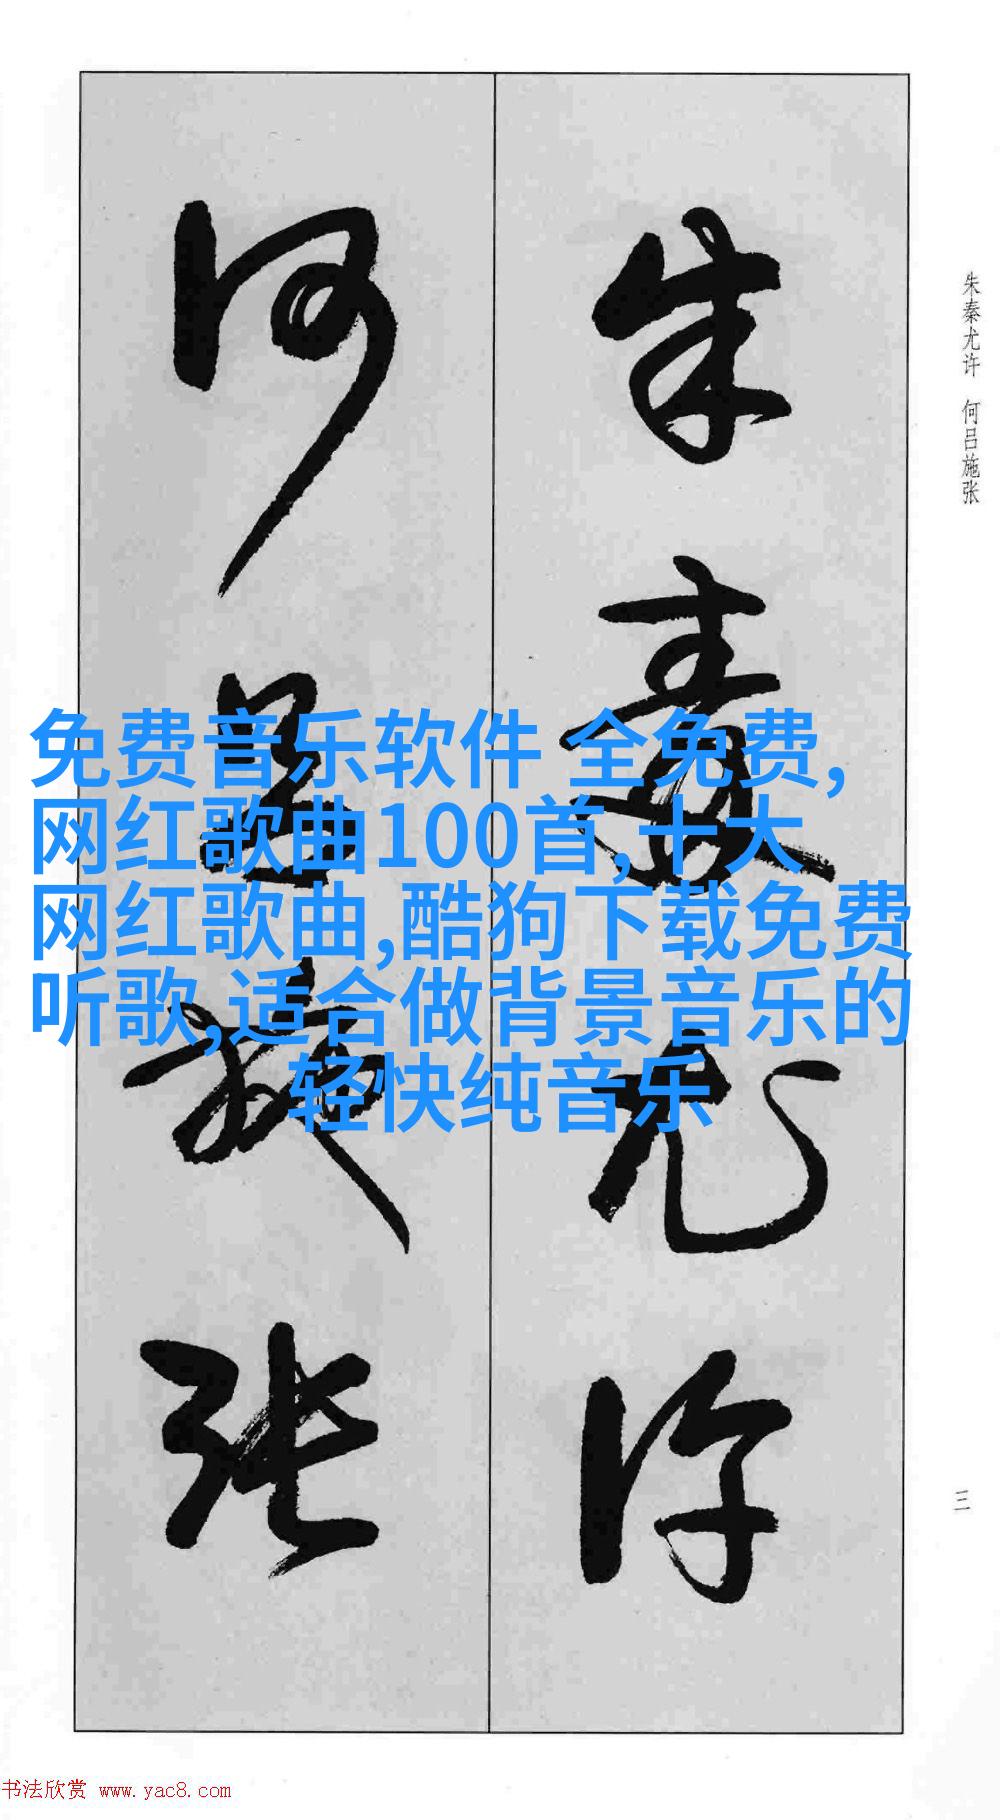 朱秦尤许
何吕施张
朱秦尤许 何吕施张
免费音乐软件 全免费,
网红歌曲100首,十大
网红歌曲,酷狗下载免费
听歌,适合做背景音乐的
轻快纯音乐
三
书法欣赏 www.yac8.com